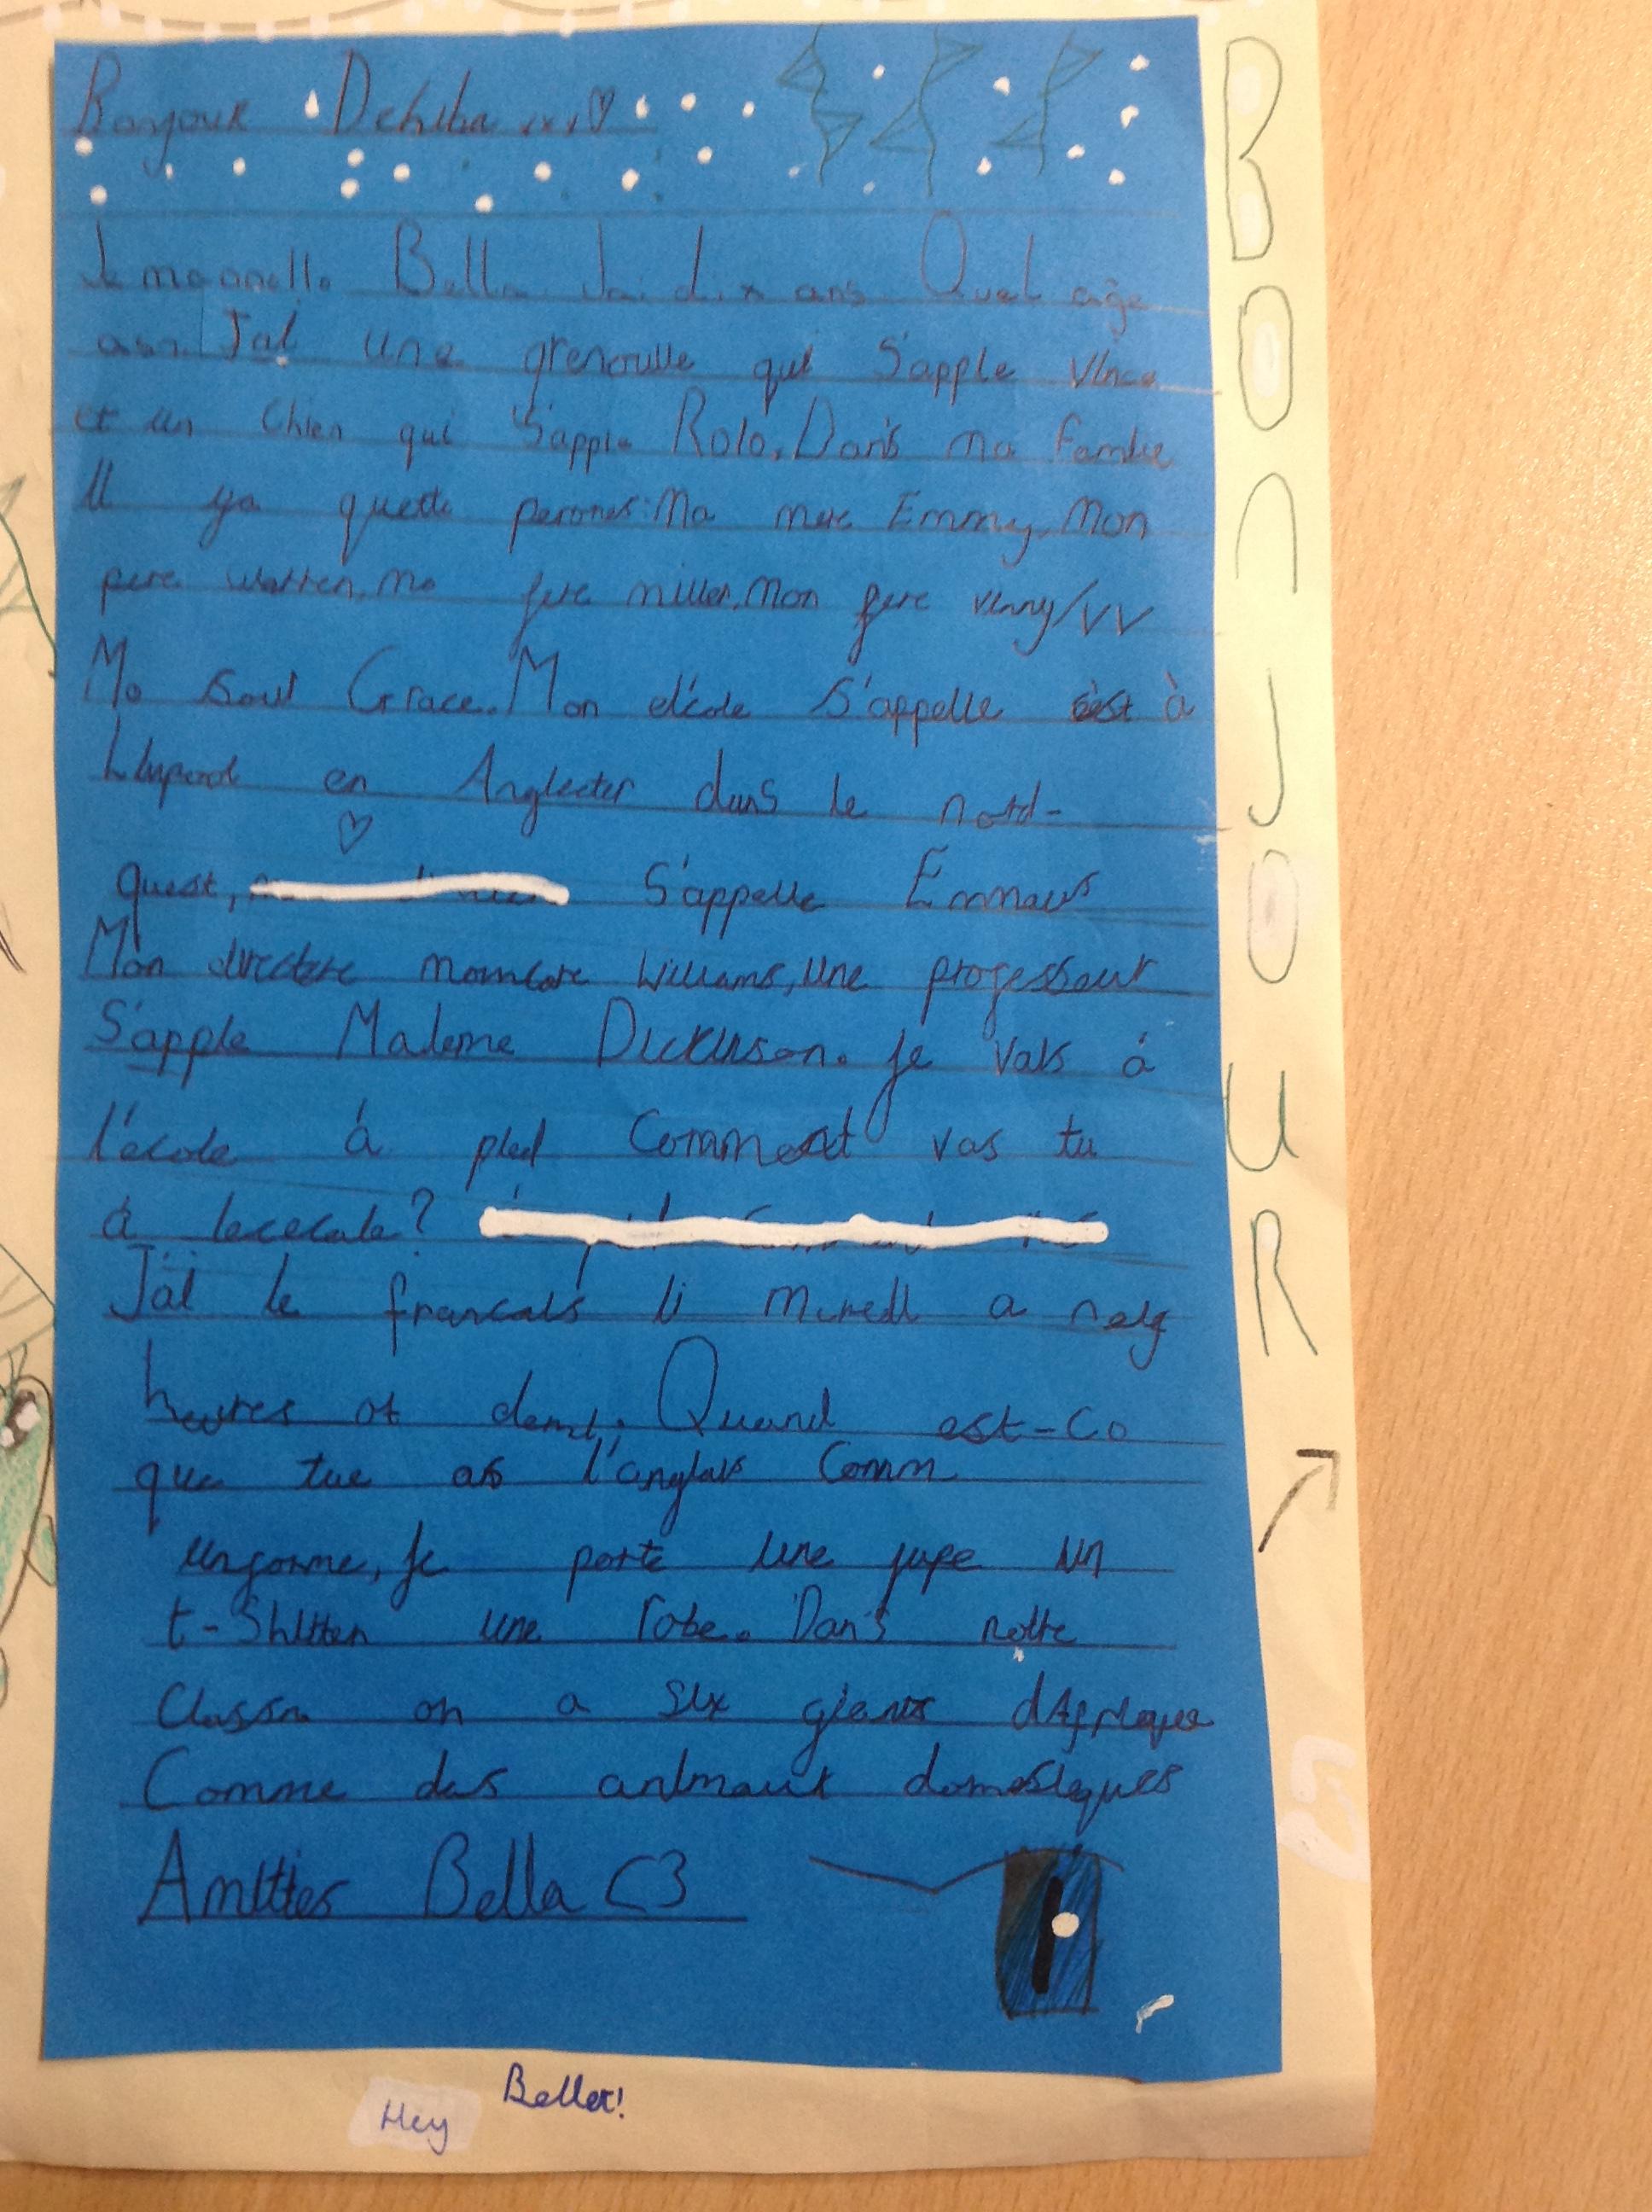 Bonjour Dehiba xxx♡
Je mappelle Bella Jai dix ans Quel age
asn Jai une grenoulle qui S'apple Vince
et un Chien qui S'apple Rolo. Dans ma Familie
Il ya quette perones: Ma mere Emmy, Mon
pere warren, ma fere miller, Mon fere vinny/VV
Ma Sout Grace. Mon d'école S'appelle èest à
Liverpool en Angleeter dans le nord-
ouest, S'appelle Emmaus
Mon directere Williams, Une professeur
S'apple Mademe Dickinson. Je vais á
l'école á pied Comment vas tu
á lececole?
J'ai le francais li mircdi a neif
heures et demi. Quand est-Co
que tue as l'anglais Comm
uniforme, Je porte une jupe un
t-Shitten une robe. Dans notte
Classn on a six gients d'Afrique
Comme des animaux domesieques
Amities Bella <3
BONJOUR
Hey Bella!